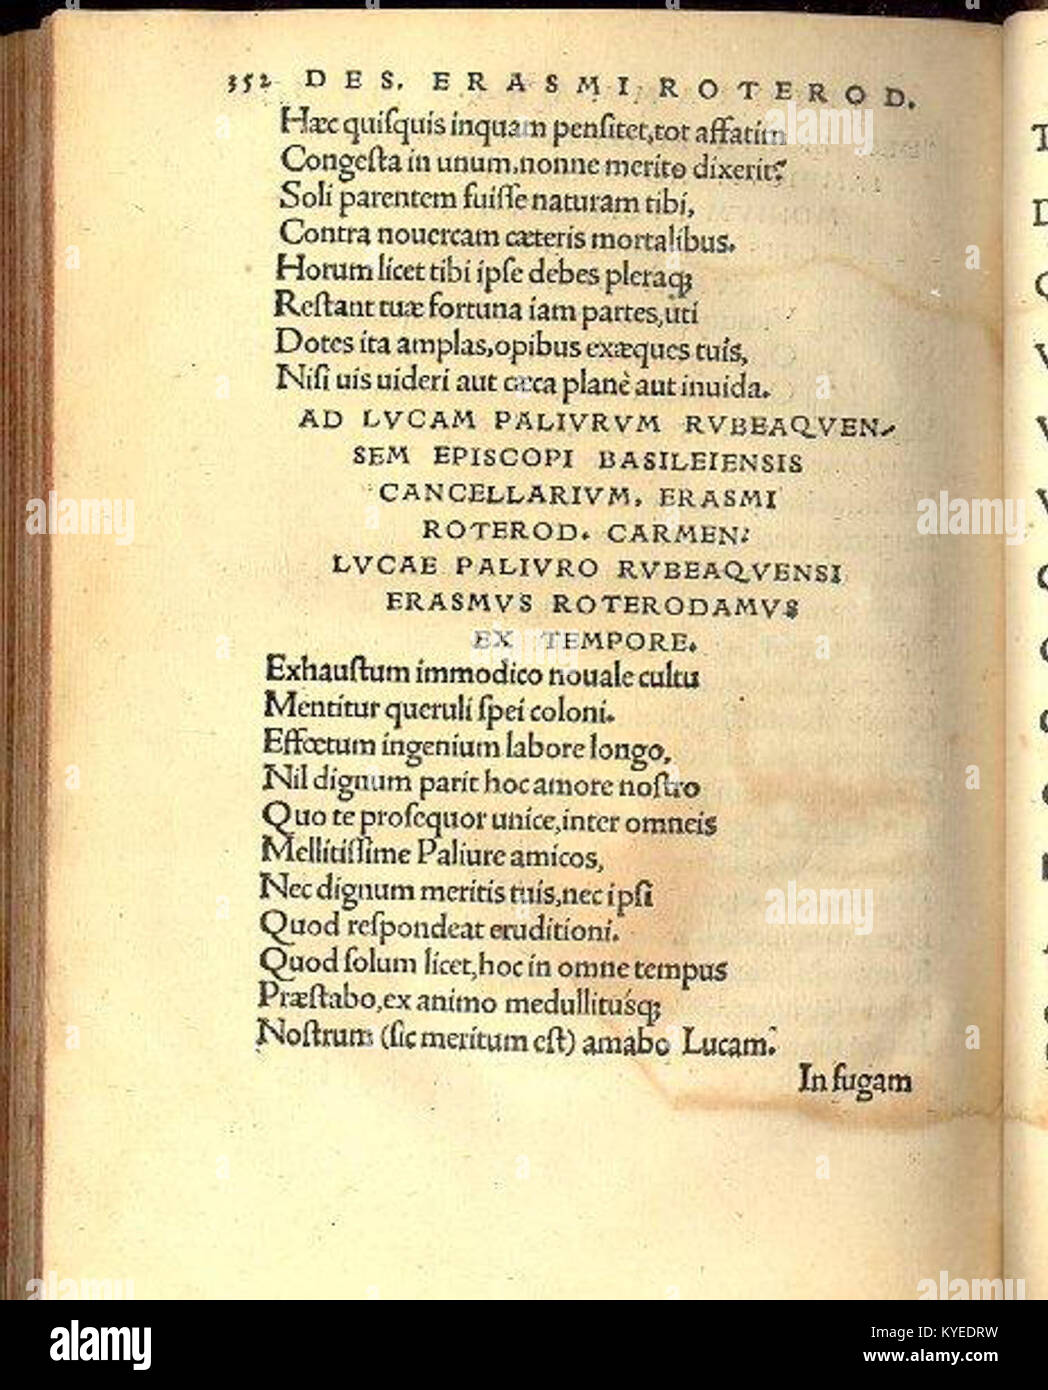 352 DES. ERASMI ROTEROD.
Hæc quiſquis inquam penſitet, tot affatim
Congeſta in unum, nonne merito dixerit?
Soli parentem fuiſſe naturam tibi,
Contra nouercam cæteris mortalibus.
Horum licet tibi ipſe debes pleraqꝫ
Reſtant tuæ fortuna iam partes, uti
Dotes ita amplas, opibus exæques tuis,
Niſi uis uideri aut cæca planè aut inuida.
AD LVCAM PALIVRVM RVBEAQVEN-
SEM EPISCOPI BASILEIENSIS
CANCELLARIVM, ERASMI
ROTEROD. CARMEN.
LVCAE PALIVRO RVBEAQVENSI
ERASMVS ROTERODAMVS
EX TEMPORE.
Exhauſtum immodico nouale cultu
Mentitur queruli ſpei coloni.
Effœtum ingenium labore longo,
Nil dignum parit hoc amore noſtro
Quo te proſequor unice, inter omneis
Mellitiſſime Paliure amicos,
Nec dignum meritis tuis, nec ipſi
Quod reſpondeat eruditioni.
Quod ſolum licet, hoc in omne tempus
Præſtabo, ex animo medullituśqꝫ
Noſtrum (ſic meritum eſt) amabo Lucam.
In fugam
alamy stock photo
alamy
Image ID: KYEDRW
www.alamy.com